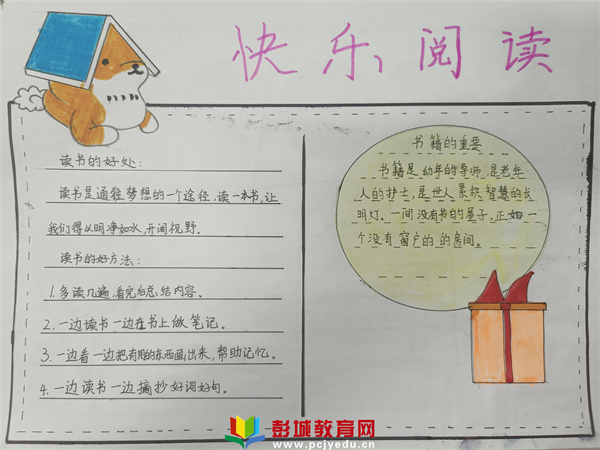 快乐阅读
读书的好处:
读书是通往梦想的一个途径.读一本书,让
我们得以明净如水,开阔视野。
读书的好方法:
1.多读几遍,看完后总结内容。
2.一边读书一边在书上做笔记。
3.一边看一边把有用的东西画出来,帮助记忆。
4.一边读书一边摘抄好词好句。
书籍的重要
书籍是幼年的导师,是老年
人的护士,是世人累积智慧的长
明灯。一间没有书的屋子,正如一
个没有窗户的的房间。
彭城教育网
www.pcjyedu.cn